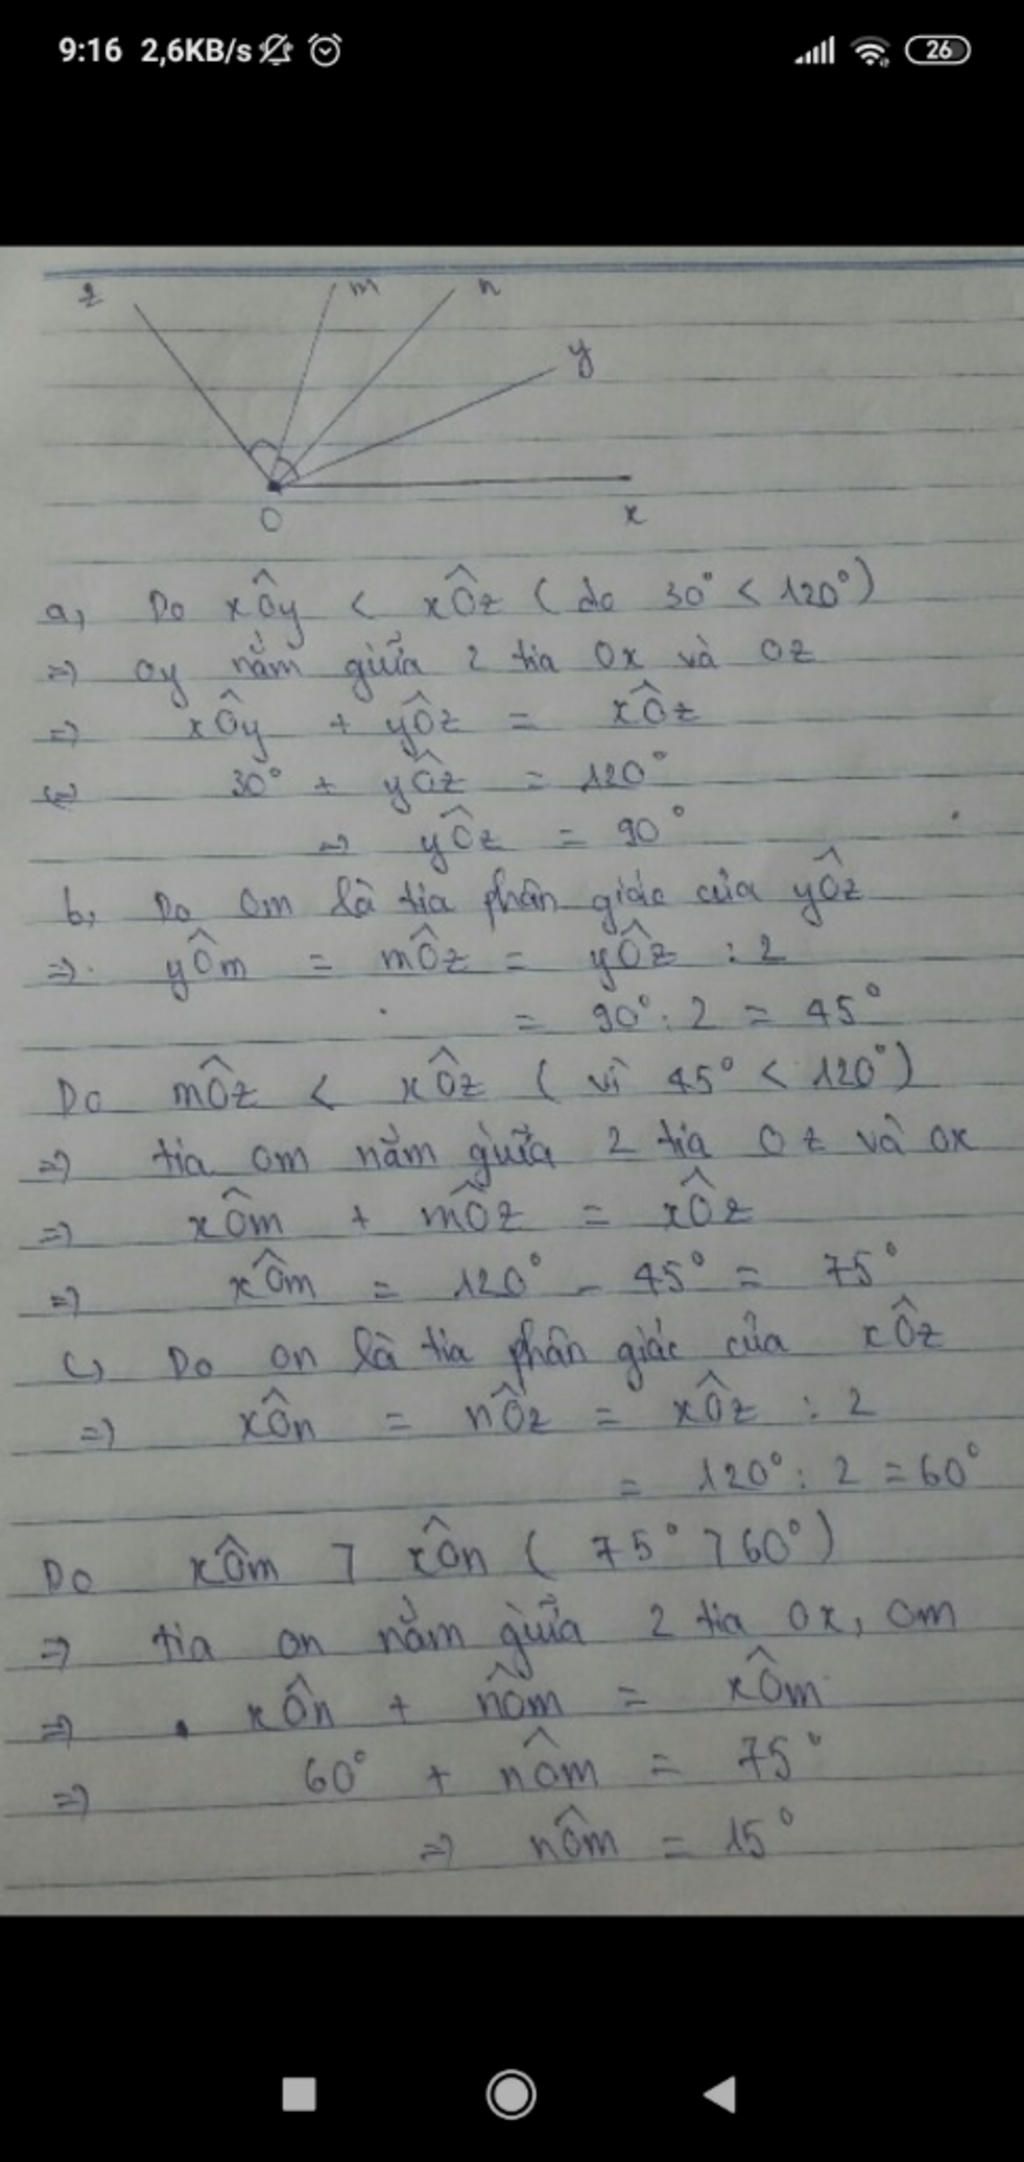 9:16 2,6KB/s 26
z m n
y
O x
a, Do xÔy < xÔz ( do 30° < 120° )
=> Oy nằm giữa 2 tia Ox và Oz
=> xÔy + yÔz = xÔz
<=> 30° + yÔz = 120°
=> yÔz = 90°
b, Do Om là tia phân giác của yÔz
=> yÔm = mÔz = yÔz : 2
= 90° : 2 = 45°
Do mÔz < xÔz ( vì 45° < 120° )
=> tia Om nằm giữa 2 tia Oz và Ox
=> xÔm + mÔz = xÔz
=> xÔm = 120° - 45° = 75°
c, Do On là tia phân giác của xÔz
=> xÔn = nÔz = xÔz : 2
= 120° : 2 = 60°
Do xÔm > xÔn ( 75° > 60° )
=> tia On nằm giữa 2 tia Ox, Om
=> xÔn + nÔm = xÔm
=> 60° + nÔm = 75°
=> nÔm = 15°